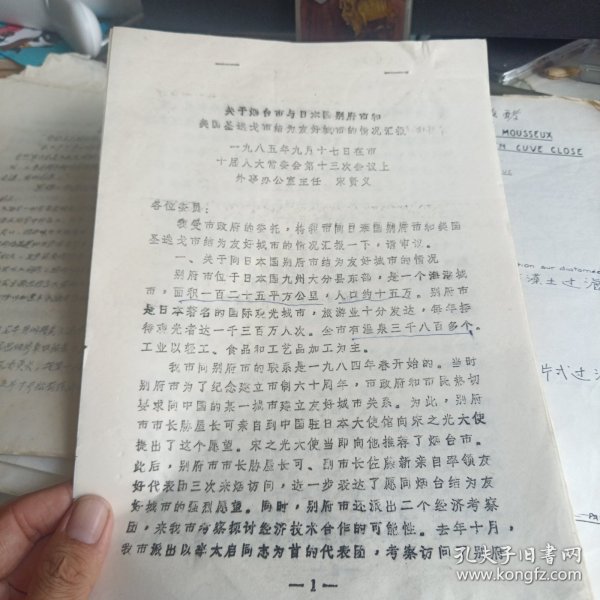 关于烟台市与日本国别府市和
美国圣迭戈市结为友好城市的情况汇报
一九八五年九月十七日在市
十届人大常委会第十三次会议上
外事办公室主任 宋贤义
各位委员：
我受市政府的委托，将我市同日本国别府市和美国
圣迭戈市结为友好城市的情况汇报一下，请审议。
一、关于同日本国别府市结为友好城市的情况
别府市位于日本国九州大分县东部，是一个海滨城
市，面积一百二十五平方公里，人口约十五万。别府市
是日本著名的国际观光城市，旅游业十分发达，每年接
待观光者达一千三百万人次。全市有温泉三千八百多个。
工业以轻工、食品和工艺品加工为主。
我市同别府市的联系是一九八四年春开始的。当时
别府市为了纪念建立市制六十周年，市政府和市民热切
要求同中国的某一城市建立友好城市关系。为此，别府
市市长胁屋长可亲自到中国驻日本大使馆向宋之光大使
提出了这个愿望。宋之光大使当即向他推荐了烟台市。
此后，别府市市长胁屋长可、副市长佐藤新亲自率领友
好代表团三次来烟访问，进一步表达了愿同烟台结为友
好城市的强烈愿望。同时，别府市还派出二个经济考察
团，来我市考察探讨经济技术合作的可能性。去年十月，
我市派出以李太启同志为首的代表团，考察访问了别府
—1—
MOUSSEUX
EN CUVE CLOSE
藻土过滤
片式过滤
孔夫子旧书网
www.kongfz.com